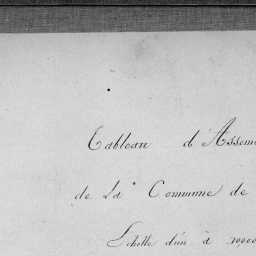 Tableau d'Assem
de La Commune de
Echelle d'un à 10000